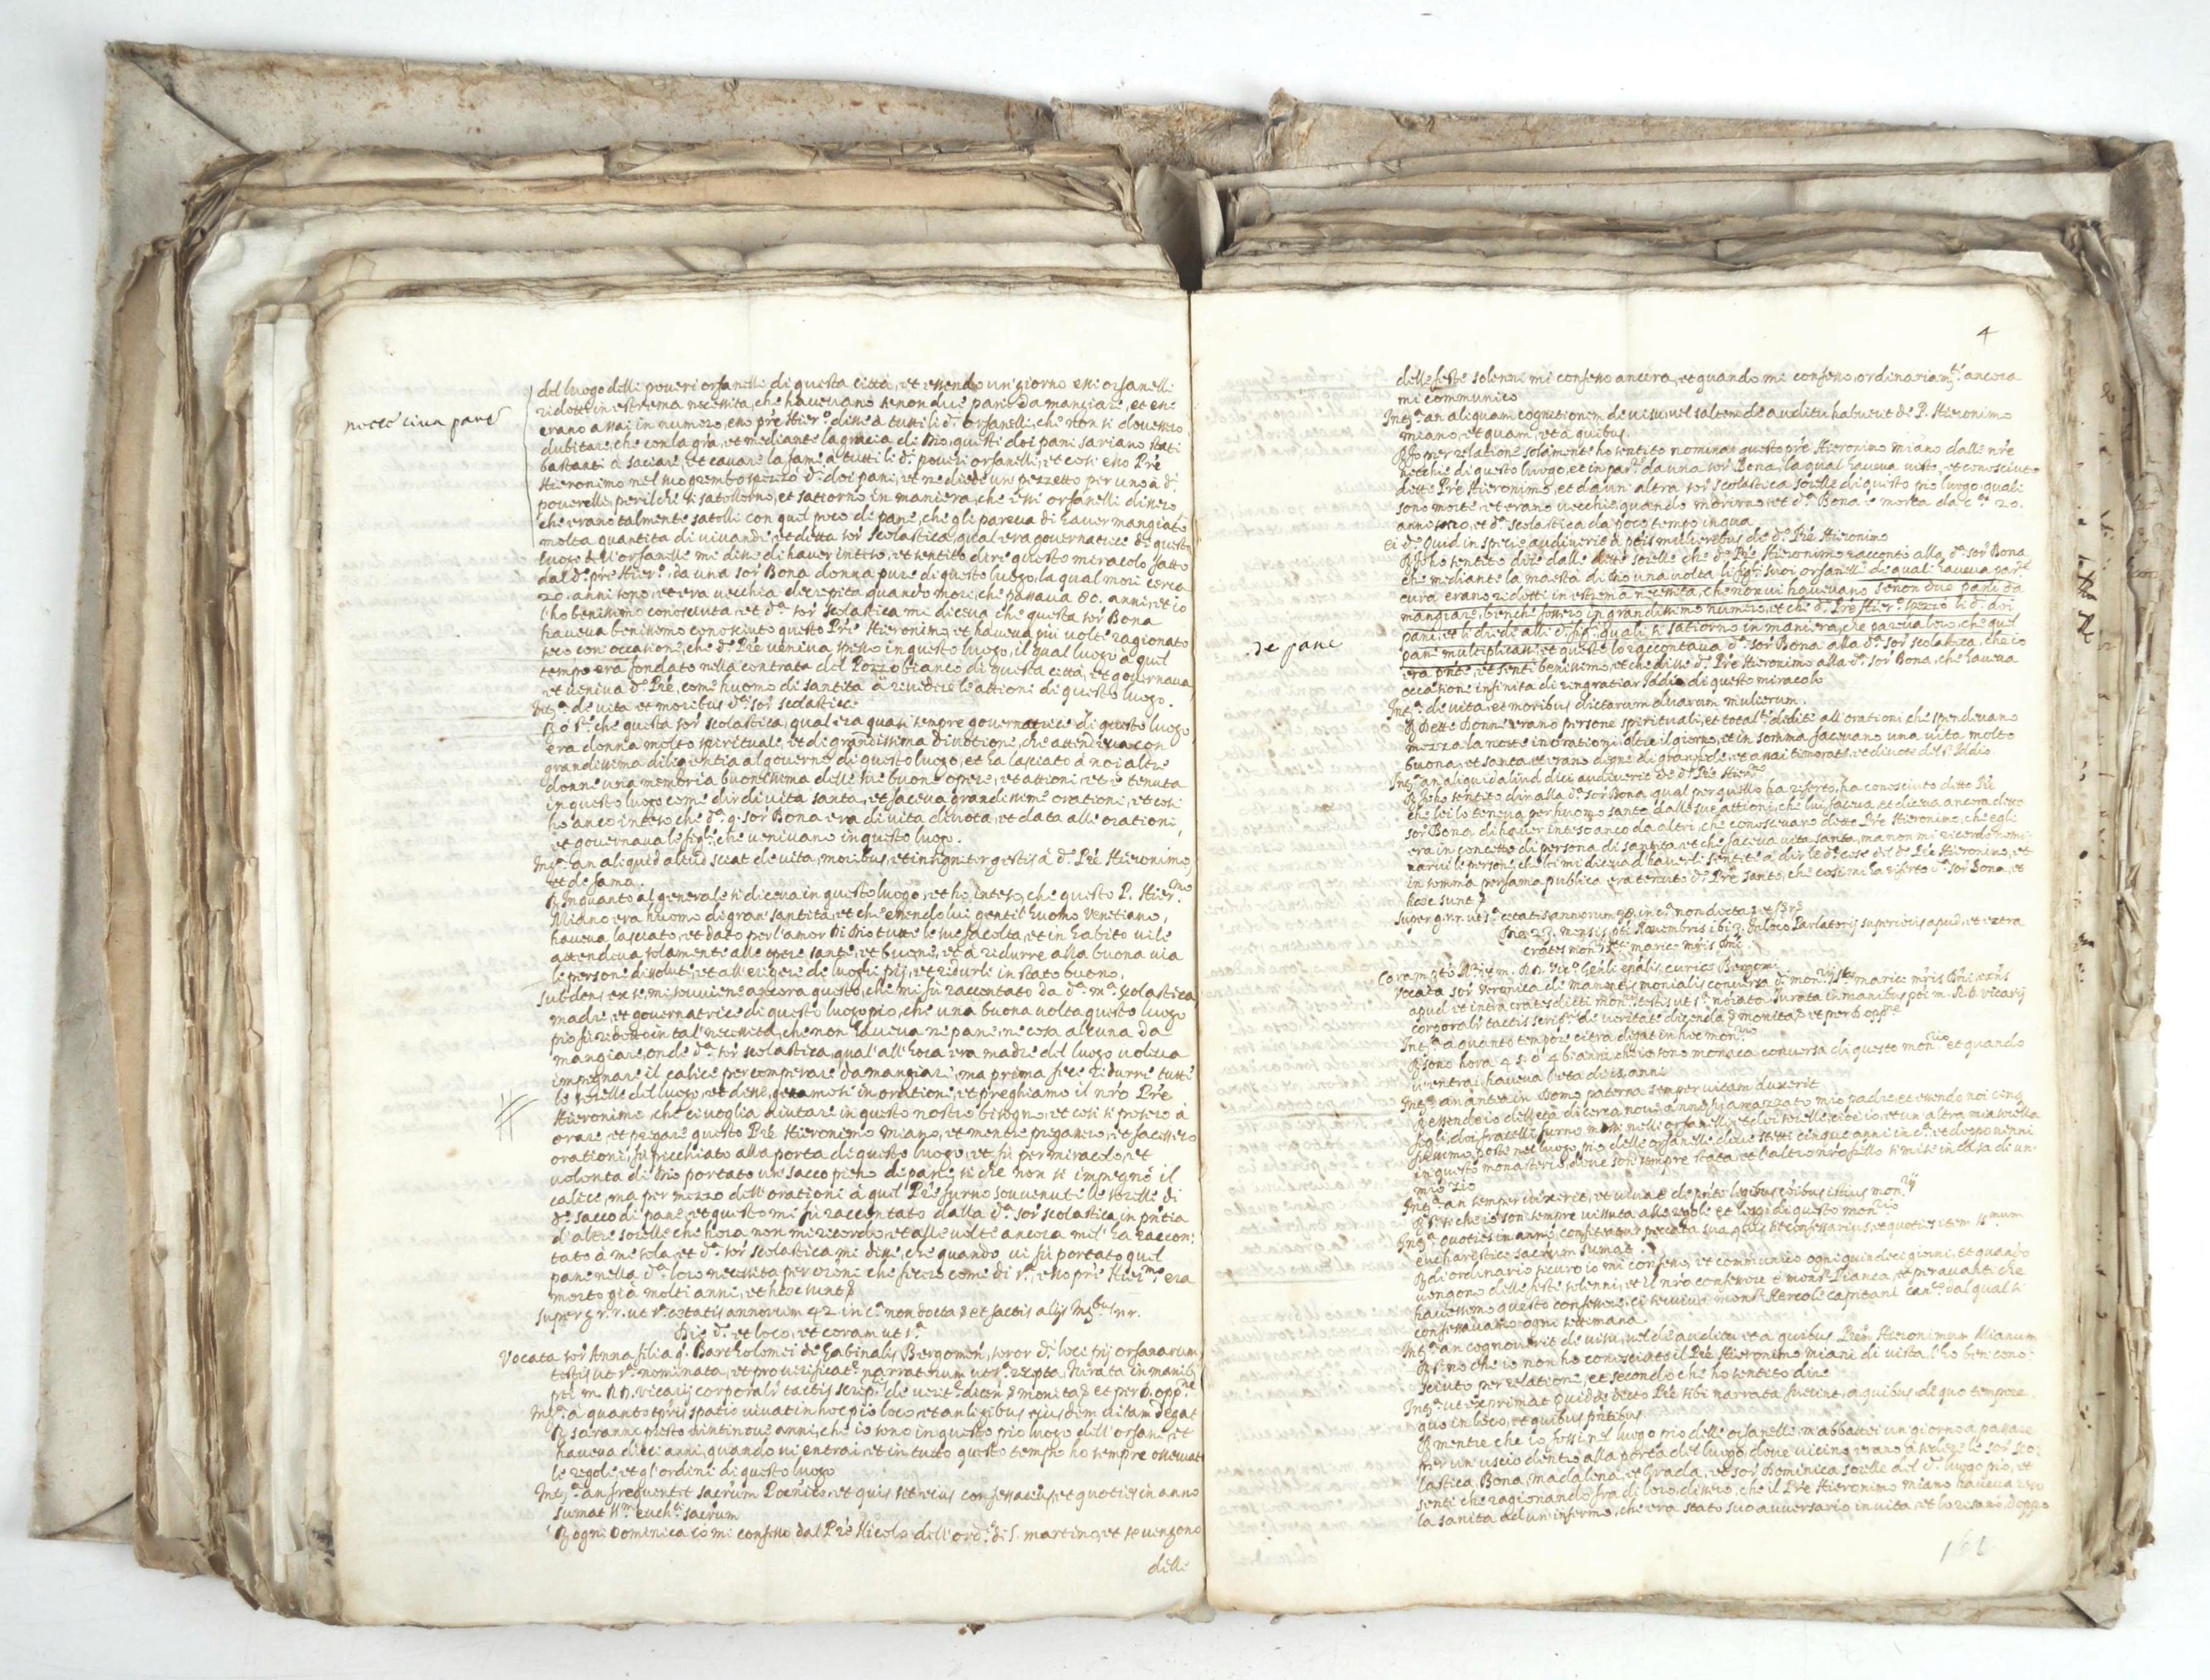 notte circa pane
del luogo delli poveri orfanelli di questa città, et essendo un giorno essi orfanelli
ridotti in estrema necessità, che havevano senon duè pani da mangiare, et che
erano assai in numero, esso prè Hier.º disse à tutti li d.ⁱ orfanelli, che non si dovessero
dubitare, che con la grã, et mediante la gracia di Dio, questi doi pani sariano stati
bastanti à saciare, et cavare la fame à tutti li d.ⁱ poveri orfanelli, et cosi esso Prè
Hieronimo nel suo grembo spezzò d.ⁱ doi pani, et ne diede un pezzetto per uno à d.ⁱ
poverelli, perilche si satollorno, et satiorno in maniera, che essi orfanelli dissero,
che erano talmente satolli con quel poco di pane, che gli pareva di haver mangiato
molta quantita di vivande, et detta sor Scolastica, qual era governatrice di questo
luogo dell'orfanelle mi disse di haver inteso, et sentito dire questo miracolo fatto
dal d.º prè Hier.º, da una sor Bona donna pure di questo luogo, la qual morì cerca
20. anni sono, et era vecchia decrepita quando morì, che passava 80. anni, et io
l'ho benissimo conosciuta, et d.ª sor Scolastica mi diceva che questa sor Bona
haveva benissimo conosciuto questo Prè Hieronimo, et haveva più volte ragionato
seco con occasione, che d.º Prè veniva spesso in questo luogo, il qual luogo à quel
tempo era fondato nella contrata del Pozzo bianco di questa città, et governava
et veniva d.º Prè, come huomo di santità à rividere le attioni di questo luogo.
Int.ª de vita et moribus d.ª sor Scolastice
R. ó S.ʳ che questa sor Scolastica, qual era quasi sempre governatrice di questo luogo
era donna molto spirituale, et di grandissima divotione, che attendeva con
grandissima diligentia al governo di questo luogo, et ha lasciato à noi altre
donne una memoria buonissima delle sue buone opere, et attioni, et è tenuta
in questo luogo come dir di vita santa, et faceva grandissime orationi, et cosi
ho anco inteso che d.ª q. sor Bona era di vita divota, et data alle orationi,
et governava le figl.ᵉ che venivano in questo luogo.
Int.ª an aliquid aliud sciat de vita, moribus, et insigniter gestis à d.º Prè Hieronimo,
et de fama.
R. Inquanto al generale si diceva in questo luogo, et ho inteso, che questo P. Hier.ᵐᵒ
Miano era huomo di gran santità, et che essendo lui gentil'huomo Venetiano,
haveva lasciato, et dato per l'amor di Dio tutte le sue facolta, et in habito vile
attendeva solamente alle opere sante, et buone, et à ridurre alla buona via
le persone dissolute, et all'erigere de luoghi pij, et ridurli in stato buono.
Subdens ex se, mi souviene ancora questo, che mi fù raccontato da d.ª m.ª Scolastica
madre, et governatrice di questo luogo pio, che una buona volta questo luogo
pio fù ridotto in tal'necessità, che non haveva ne pane, ne cosa alcuna da
mangiare, onde d.ª sor Scolastica, qual'all'hora era madre del luogo voleva
impegnare il calice per comperare da mangiare, ma prima fece ridurre tutte
le sorelle del luogo, et disse, gettamosi in oratione, et preghiamo il nr̃o Prè
Hieronimo, che ci voglia aiutare in questo nostro bisogno, et cosi si posero à
orare, et pregare questo Prè Hieronimo Miano, et mentre pregavero, et facessero
orationi, fù picchiato alla porta di questo luogo, et fù per miracolo, et
volonta di Dio portato un sacco pieno di pane, si che non si impegnò il
calice, ma per mezzo dell'orationi à quel Prè furno souvenute le sorelle di
d.º sacco di pane, et questo mi fù raccontato dalla d.ª sor Scolastica in pñtia
d'altre sorelle che hora non mi ricordo, et alle volte ancora mel'ha raccon:
tato à me sola, et d.ª sor Scolastica mi disse, che quando vi fù portato quel
pane nella d.ª loro necessita per orõni che fecero come di s.ª, esso prè Hier.ᵐᵒ era
morto già molti anni, et hæc sunt
Super g.r.r. ut s.ª ætatis annorum 42 in c.ª non docta et factis alijs Int.ᵇᵘˢ nr.
Die d.º et loco, et coram ut s.ª
Vocata sor Anna filia q. Bartholomei de Gabinalis Bergomen. soror d.ⁱ loci pij orfanarum
testis ut s.ª nominata, et pro verificat.ᵉ narratorum ut s.ª recepta, Iurata in manib.
pti m. R.D. vicarij corporalr tactis scrip.ⁱˢ de verit.ᵉ dicen. monita et per D. opp.ⁿᵉ
Int.ª à quanto tp̃ris spatio vivat in hoc pio loco, et an legibus eiusdem vitam degat
R. saranno presto vintinove anni, che io sono in questo pio luogo dell'orfane, et
haveva dieci anni, quando vi entrai, et in tutto questo tempo ho sempre osservate
le regole, et gl'ordini di questo luogo
Int.ª an frequentet sacrum Pœnitẽ. et quis sit eius confessarius, et quoties in anno
sumat ss.ᵐ euch.ᵉ sacrum
R. ogni Dominica io mi confesso dal Prè Nicolo dell'ord.ᵉ di S. Martino, et se vengono
delle
4
delle feste solenni mi confesso ancora, et quando mi confesso, ordinariam.ᵗᵉ ancora
mi communico
Int.ª an aliquam cognitionem de visu, vel saltem de auditu habuerit de P. Hieronimo
Miano, et quam, et à quibus.
R. Io per relatione solamente ho sentito nominar questo prè Hieronimo Miano dalle nr̃e
vecchie di questo luogo, et in par.ʳᵉ da una sor Bona, la qual haveva visto, et conosciuto
detto Prè Hieronimo, et da un'altra sor Scolastica sorelle di questo pio luogo, quali
sono morte, et erano vecchie, quando morirno, et d.ª Bona è morta da c.ª 20.
anni sono, et d.ª Scolastica da poco tempo in qua
Ei d.º Quid in specie audiverit à ptis mulieribus de d.º Prè Hieronimo
R. Io ho sentito dire dalle dette sorelle che d.º Prè Hieronimo raccontò alla d.ª sor Bona
che mediante la maestà di Dio una volta li figli suoi orfanelli di quali haveva par.ʳᵉ
cura erano ridotti in estrema necessita, che non vi havevano senon due pani da
mangiare, benche fossero in grandissimo numero, et che d.º Prè Hier.º spezzò li d.ⁱ doi
de pane
pani, et li diede alli d.ⁱ fig.ˡⁱ quali si satiorno in maniera, che pareva loro, che quel
pane multiplicasse, et questo lo raccontava d.ª sor Bona alla d.ª sor Scolastica, che io
era pñte, et sentì benissimo, et che disse d.º Prè Hieronimo alla d.ª sor Bona, che haveva
occasione infinita di ringratiar Iddio di questo miracolo
Int.ª de vita, et moribus dictarum duarum mulierum.
R. Dette Donne erano persone spirituali, et total.ᵗᵉ dedite all'orationi che spendevano
mezza la notte in orationi, oltre il giorno, et in somma facevano una vita molto
buona, et santa, et erano degne di gran fede, et assai timorate, et divote del S. Iddio.
Int.ª an aliquid aliud dici audiverit de d.º Prè Hier.ᵐᵒ
R. Io ho sentito dir alla d.ª sor Bona, qual per quello ha riferto, ha conosciuto detto Prè
che lei lo teneva per huomo santo dalle sue attioni, che lui faceva, et diceva ancora detta
sor Bona di haver inteso anco da altri, che conoscevano detto Prè Hieronimo, che egli
era in concetto di persona di santità, et che faceva vita santa, ma non mi ricordo nomi:
narvi le persone, che lei mi diceva d'haverle sentite à dir le d.ᵉ cose del d.º Prè Hieronimo, et
in somma per fama publica era tenuto d.º Prè santo, che cosi mi ha riferto d.ª sor Bona, et
hæc sunt
Super g.r.r. ut s.ª ætatis annorum 38 in c.ª non docta
Die 23. mensis pti Novembris ibi. In loco Parlatorij superioris apud, et extra
crates mon.ʳⁱʲ S.ᵗᵉ Mariæ Mr̃is Dñi
Coram pto Ill. et m. R.D. Vic.º gen̄li ep̄alis curiæ Bergomi
Vocata sor Veronica de Mamolis monialis conversa d.ⁱ mon.ʳⁱʲ S.ᵗᵉ Mariæ Mr̃is Dñi nr̃i
apud et intra crates dicti mon.ʳⁱʲ testis ut s.ª nõiata Iurata in manibus pti m. R.D. vicarij
corporalr tactis script.ⁱˢ de veritate dicenda monita, et per D. opp.ⁿᵉ
Int.ª à quanto tempore citra degat in hoc mon.ʳⁱᵒ
R. sono hora 45. ò 46. anni che io sono monaca conversa di questo mon.ʳⁱᵒ et quando
vi entrai, haveva l'eta di 15 anni
Int.ª an antea in Domo paterna semper vitam duxerit
R. Essendo io dell'età di cerca nove anni fù amazzato mio padre, et essendo noi cinq.
figli, doi fratelli furno messi nelli orfanelli, et doi sorelle, cioè io, et un'altra mia sorella
fussimo poste nel luogo pio delle orfanelle, dove stetti cinque anni in c.ª, et doppo venni
in questo monasterio, dove son sempre stata, et l'altro nr̃o fr̃ello si mise in casa di un
mio zio
Int.ª an semper vixerit, et vivat de pñti legibus, ord̃ibus istius mon.ʳⁱʲ
R. S.ʳ si che io son sempre vissuta alle regole et leggi di questo mon.ʳⁱᵒ
Int.ª quoties in anno confiteatur peccata sua, quis sit confessarius, et quoties item ss.ᵐᵘᵐ
eucharistiæ sacrum sumat.
R. di ordinario sicuro io mi confesso, et communico ogni quindeci giorni, et quando
vengono delle feste solenni, et il nr̃o confessore è mons.ʳ Pianca, et per avanti che
havessimo questo confessore, ci serviva mons.ʳ Hercole Capitani can.ᶜᵒ dal qual si
confessavamo ogni settimana
Int.ª an cognoverit de visu, vel de auditu et à quibus Prèm Hieronimum Mianum
R. S.ʳ no che io non ho conosciuto il Prè Hieronimo Miani di vista, l'ho ben cono:
sciuto per relatione, et secondo che ho sentito dire
Int.ª ut exprimat quid de dicto Prè sibi narrata fuerint, à quibus, de quo tempore
quo in loco, et quibus pñtibus
R. mentre che io fossi nel luogo pio delle orfanelle, m'abbattei un giorno à passare
per un uscio dentro alla porta del luogo, dove vicino erano à sedere le sor Sco:
lastica, Bona, Madalena, et Gracia, et sor Dominica sorelle del d.º luogo pio, et
sentì che ragionando fra di loro, dissero, che il Prè Hieronimo Miano haveva reso
la sanità ad un infermo, che era stato suo avversario in vita, et lo risanò doppo